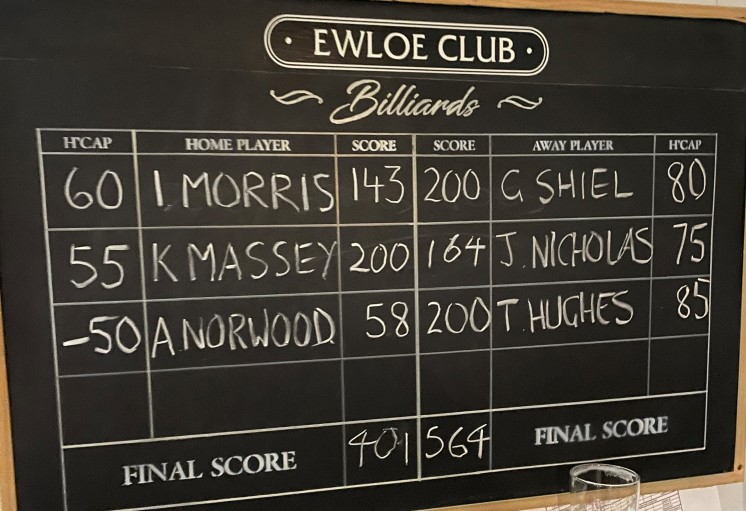 · EWLOE CLUB ·
Billiards
H'CAP HOME PLAYER SCORE SCORE AWAY PLAYER H'CAP
60 I.MORRIS 143 200 G SHIEL 80
55 K MASSEY 200 164 J. NICHOLAS 75
-50 A.NORWOOD 58 200 T. HUGHES 85
FINAL SCORE 401 564 FINAL SCORE